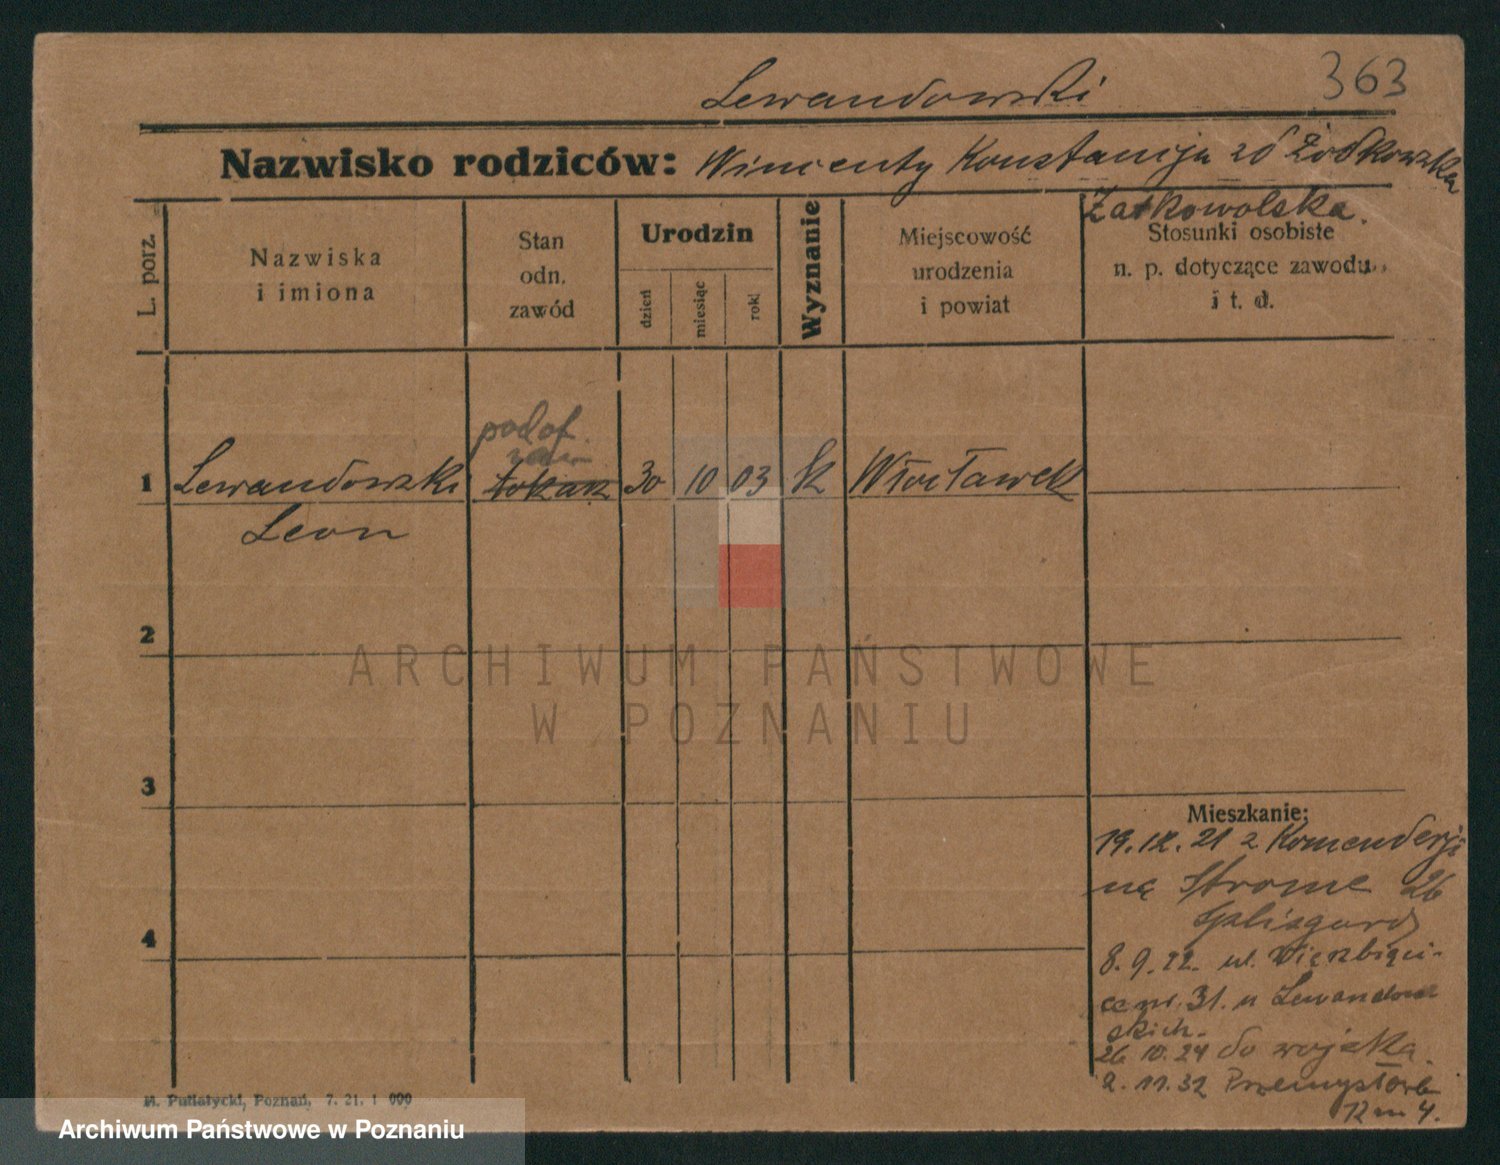 363
Lewandowski
Nazwisko rodziców: Wincenty Konstancja zd Żodkowska
Zatkowolska.
L. porz.
Nazwiska
i imiona
Stan
odn.
zawód
Urodzin
dzień
miesiąc
rok
Wyznanie
Miejscowość
urodzenia
i powiat
Stosunki osobiste
n. p. dotyczące zawodu
i t. d.
podof.
1 Lewandowski tokarz 30 10 03 Włocławek
Leon
2
3
4
Mieszkanie:
19.12.21 z Komenderji
na Strome 26
8.9.22. ul. Wierzbięci-
ce nr. 31. u Lewandow
skich.
26 10.24 do wojska.
2.11.32 Przemysłowa
12 m 4.
M. Putiatycki, Poznań, 7. 21. 1 000
ARCHIWUM PAŃSTWOWE
W POZNANIU
Archiwum Państwowe w Poznaniu